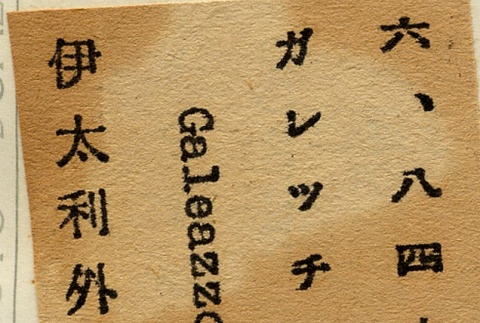 六、八四
ガレッチ
Galeazzo
伊太利外